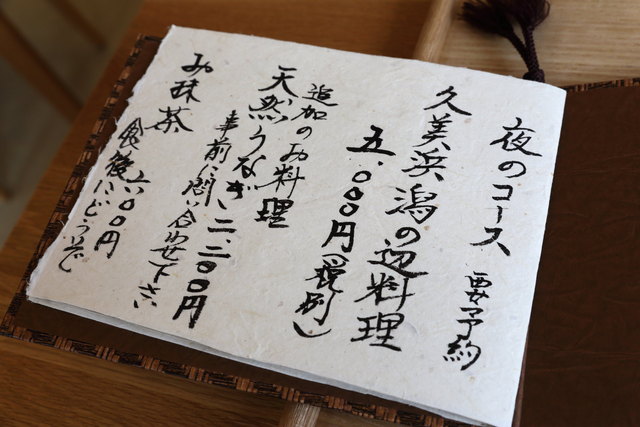 夜のコース 要予約
久美浜潟の辺料理
五.000円(税別)
追加のお料理
天然うなぎ 二.二00円
事前に問い合わせ下さい
お抹茶 六00円
食後にどうぞ